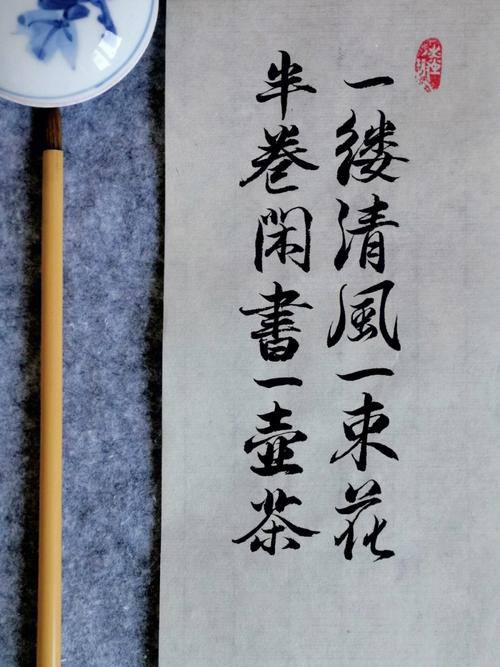 一缕清風一束花
半卷閑書一壺茶